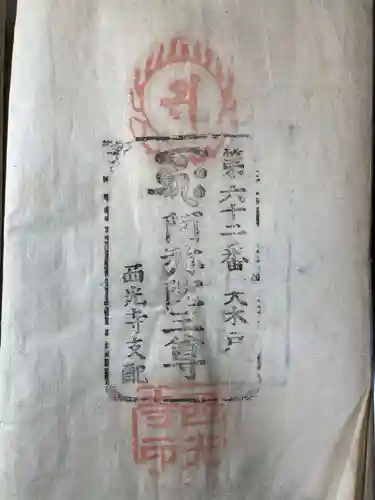 第六十二番 大木戸
阿弥陀三尊
西光寺支配
西光寺印